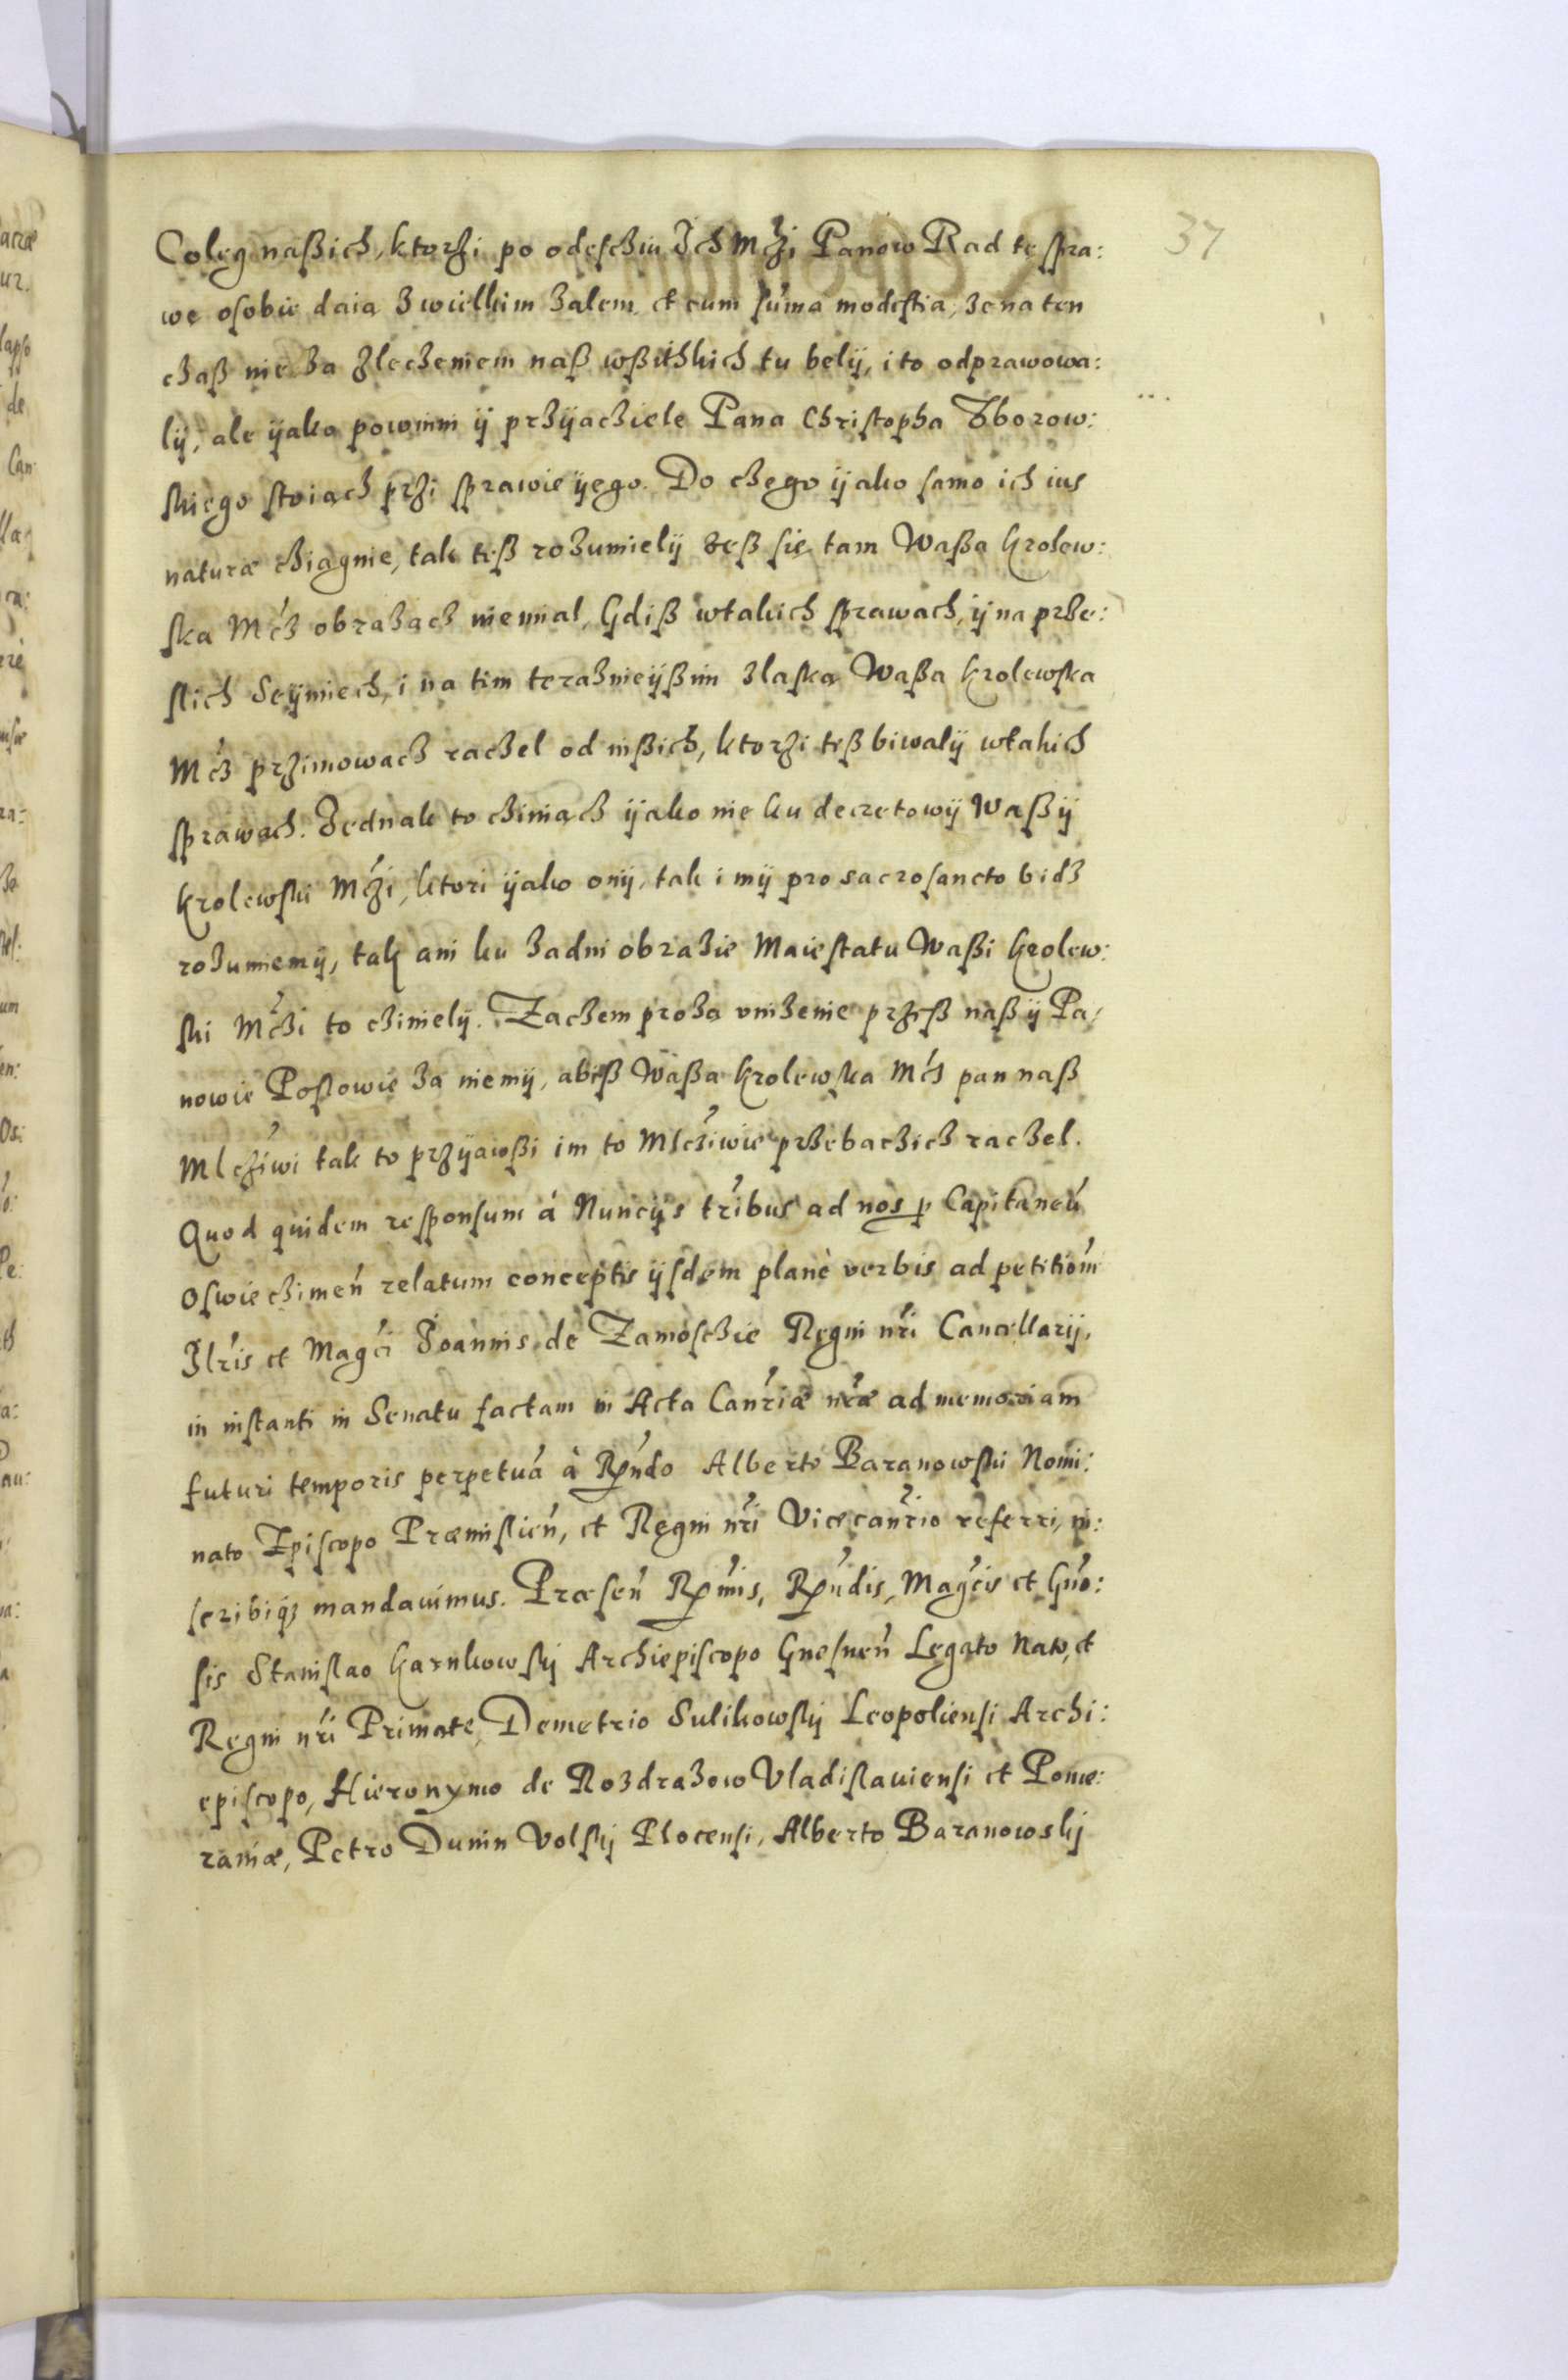 37
Coleg naßich, ktorzi po odesczíu Ich Mczi Panow Rad te spra:
we osobie daia z wielkim zalem, et cum suma modestia, ze na ten
czaß nie za zleczeniem naß wßithkich tu belÿ, i to odprawowa:
lÿ, ale ÿako powinni ÿ przÿacziele Pana Christopha Zborow:
skiego stoiacz przi sprawie ÿego. Do czego ÿako samo ich ius
naturæ cziagnie, tak teß rozumielÿ zeß sie tam Waßa Krolew:
ska Mcz obrazacz niemial, Gdiß wtakich sprawach, ÿ na prze:
slich Seÿmiech, i na tim teraznieÿßim zlaska Waßa Krolewska
Mcz przimowacz raczel od inßich, ktorzi teß biwalÿ wtakich
sprawach. Jednak to cziniacz ÿako nie ku decretowÿ Waßÿ
Krolewski Mczi, ktori ÿako onÿ, tak i mÿ pro sacrosancto bidz
rozumiemÿ, tak ani ku zadni obrazie Maiestatu Waßi Krolew:
ski Mczi to czinielÿ. Zaczem proza vnizenie przeß naß ÿ Pa/
nowie Poslowie za niemÿ, abiß Waßa Krolewska Mcz pan naß
Mlcziwi tak to przÿawßi im to Mlcziwie przebaczicz raczel.
Quod quidem responsum á Nuncÿs tribus ad nos p Capitaneú
Oswieczimeń relatum conceptis ÿsdem planè verbis ad petitiom
Ilris et Magci Joannis de Zamosczie Regni nri Cancellarij,
in instanti in Senatu factam in Acta Canriæ nræ ad memoriam
futuri temporis perpetuá à Rndo Alberto Baranowski Nomi:
nato Episcopo Præmislien, et Regni nri Vicecanrio referri, in:
scribiq; mandauimus. Præsen Rmis, Rndis, Magcis et Gno:
sis Stanislao Karnkowskÿ Archiepiscopo Gnesnen Legato Nato, et
Regni nri Primate, Demetrio Sulikowskÿ Leopoliensi Archi:
episcopo, Hieronymo de Rozdrazow Vladislauiensi et Pome:
raniæ, Petro Dunin Volskÿ Plocensi, Alberto Baranowskÿ